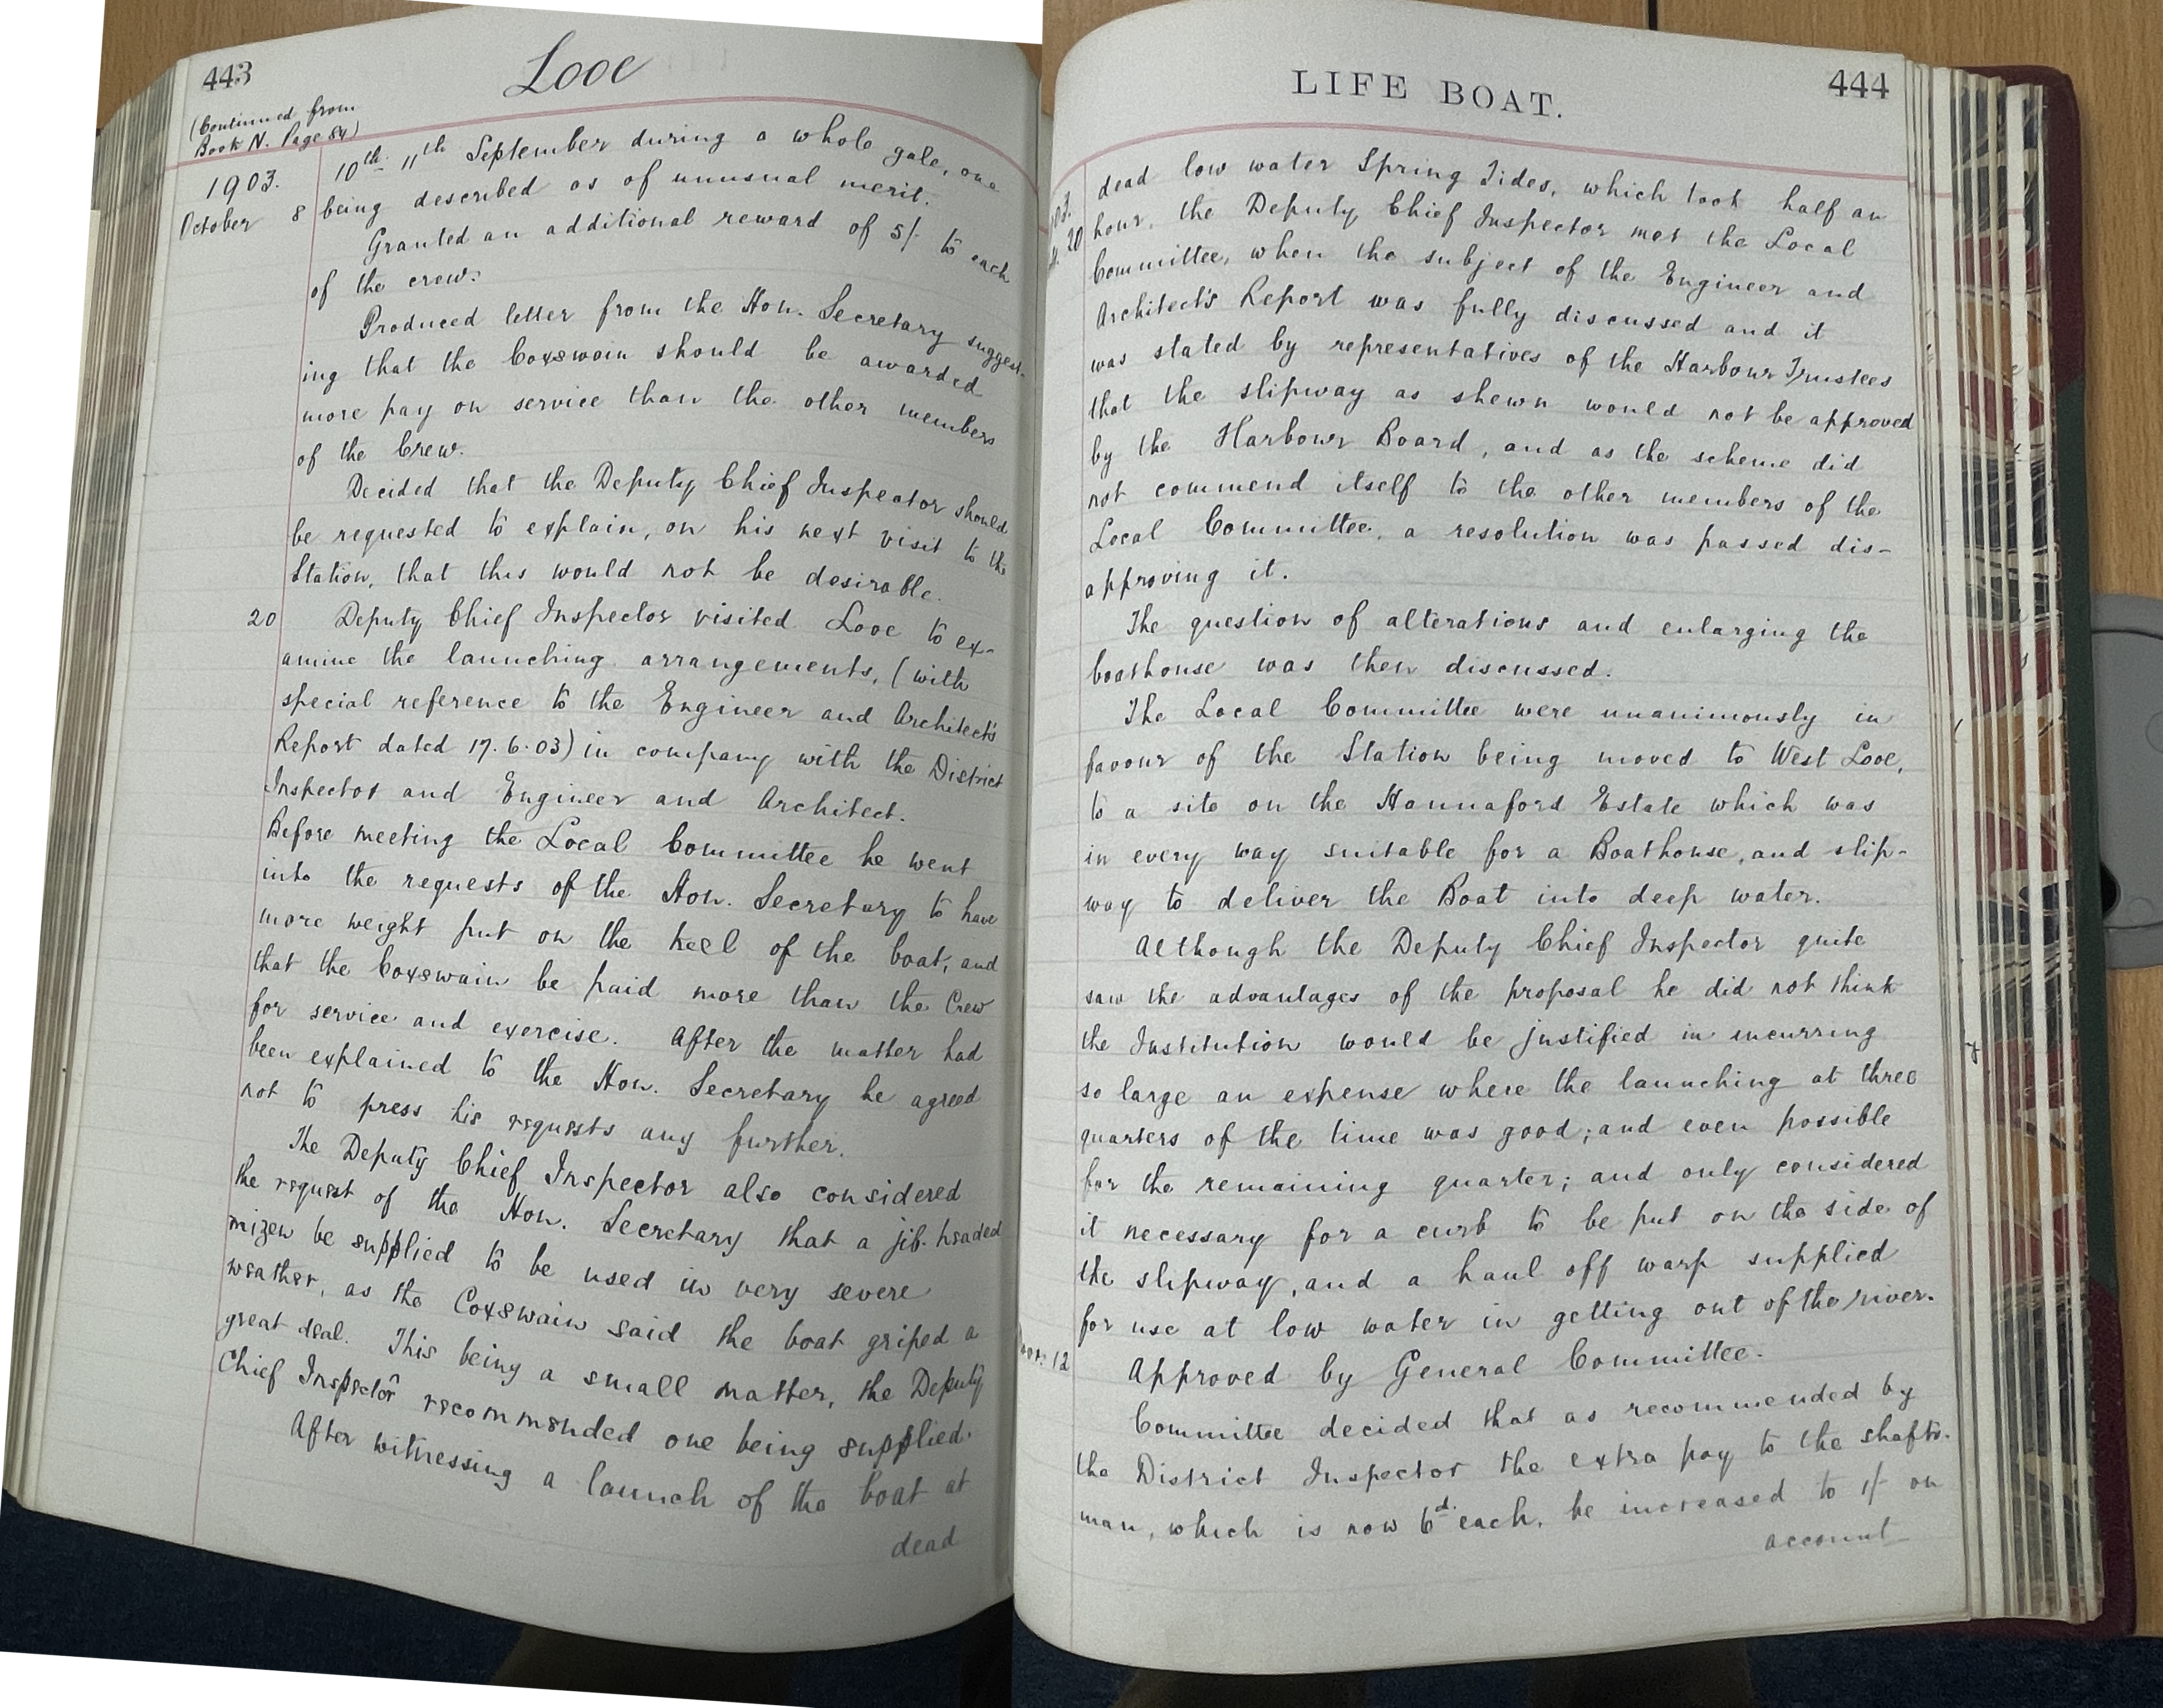 443
Looe
(Continued from
Book N. Page 84)
1903.
October 8
10th 11th September during a whole gale, one
being described as of unusual merit.
Granted an additional reward of 5/- to each
of the crew.
Produced letter from the Hon. Secretary suggest-
ing that the Coxswain should be awarded
more pay on service than the other members
of the Crew.
Decided that the Deputy Chief Inspector should
be requested to explain, on his next visit to the
Station, that this would not be desirable.
20 Deputy Chief Inspector visited Looe to ex-
amine the launching arrangements, (with
special reference to the Engineer and Architect's
Report dated 17.6.03) in company with the District
Inspector and Engineer and Architect.
Before meeting the Local Committee he went
into the requests of the Hon. Secretary to have
more weight put on the keel of the boat, and
that the Coxswain be paid more than the Crew
for service and exercise. After the matter had
been explained to the Hon. Secretary he agreed
not to press his requests any further.
The Deputy Chief Inspector also considered
the request of the Hon. Secretary that a jib-headed
mizen be supplied to be used in very severe
weather, as the Coxswain said the boat griped a
great deal. This being a small matter, the Deputy
Chief Inspector recommended one being supplied.
After witnessing a launch of the boat at
dead
LIFE BOAT.
444
20
dead low water Spring Tides, which took half an
hour, the Deputy Chief Inspector met the Local
Committee, when the subject of the Engineer and
Architect's Report was fully discussed and it
was stated by representatives of the Harbour Trustees
that the slipway as shewn would not be approved
by the Harbour Board, and as the scheme did
not commend itself to the other members of the
Local Committee, a resolution was passed dis-
approving it.
The question of alterations and enlarging the
boathouse was then discussed.
The Local Committee were unanimously in
favour of the Station being moved to West Looe,
to a site on the Hannaford Estate which was
in every way suitable for a Boathouse, and slip-
way to deliver the Boat into deep water.
Although the Deputy Chief Inspector quite
saw the advantages of the proposal he did not think
the Institution would be justified in incurring
so large an expense where the launching at three
quarters of the time was good; and even possible
for the remaining quarter; and only considered
it necessary for a curb to be put on the side of
the slipway, and a haul off warp supplied
for use at low water in getting out of the river.
12 Approved by General Committee.
Committee decided that as recommended by
the District Inspector the extra pay to the shafts-
man, which is now 6d. each, be increased to 1/- on
account